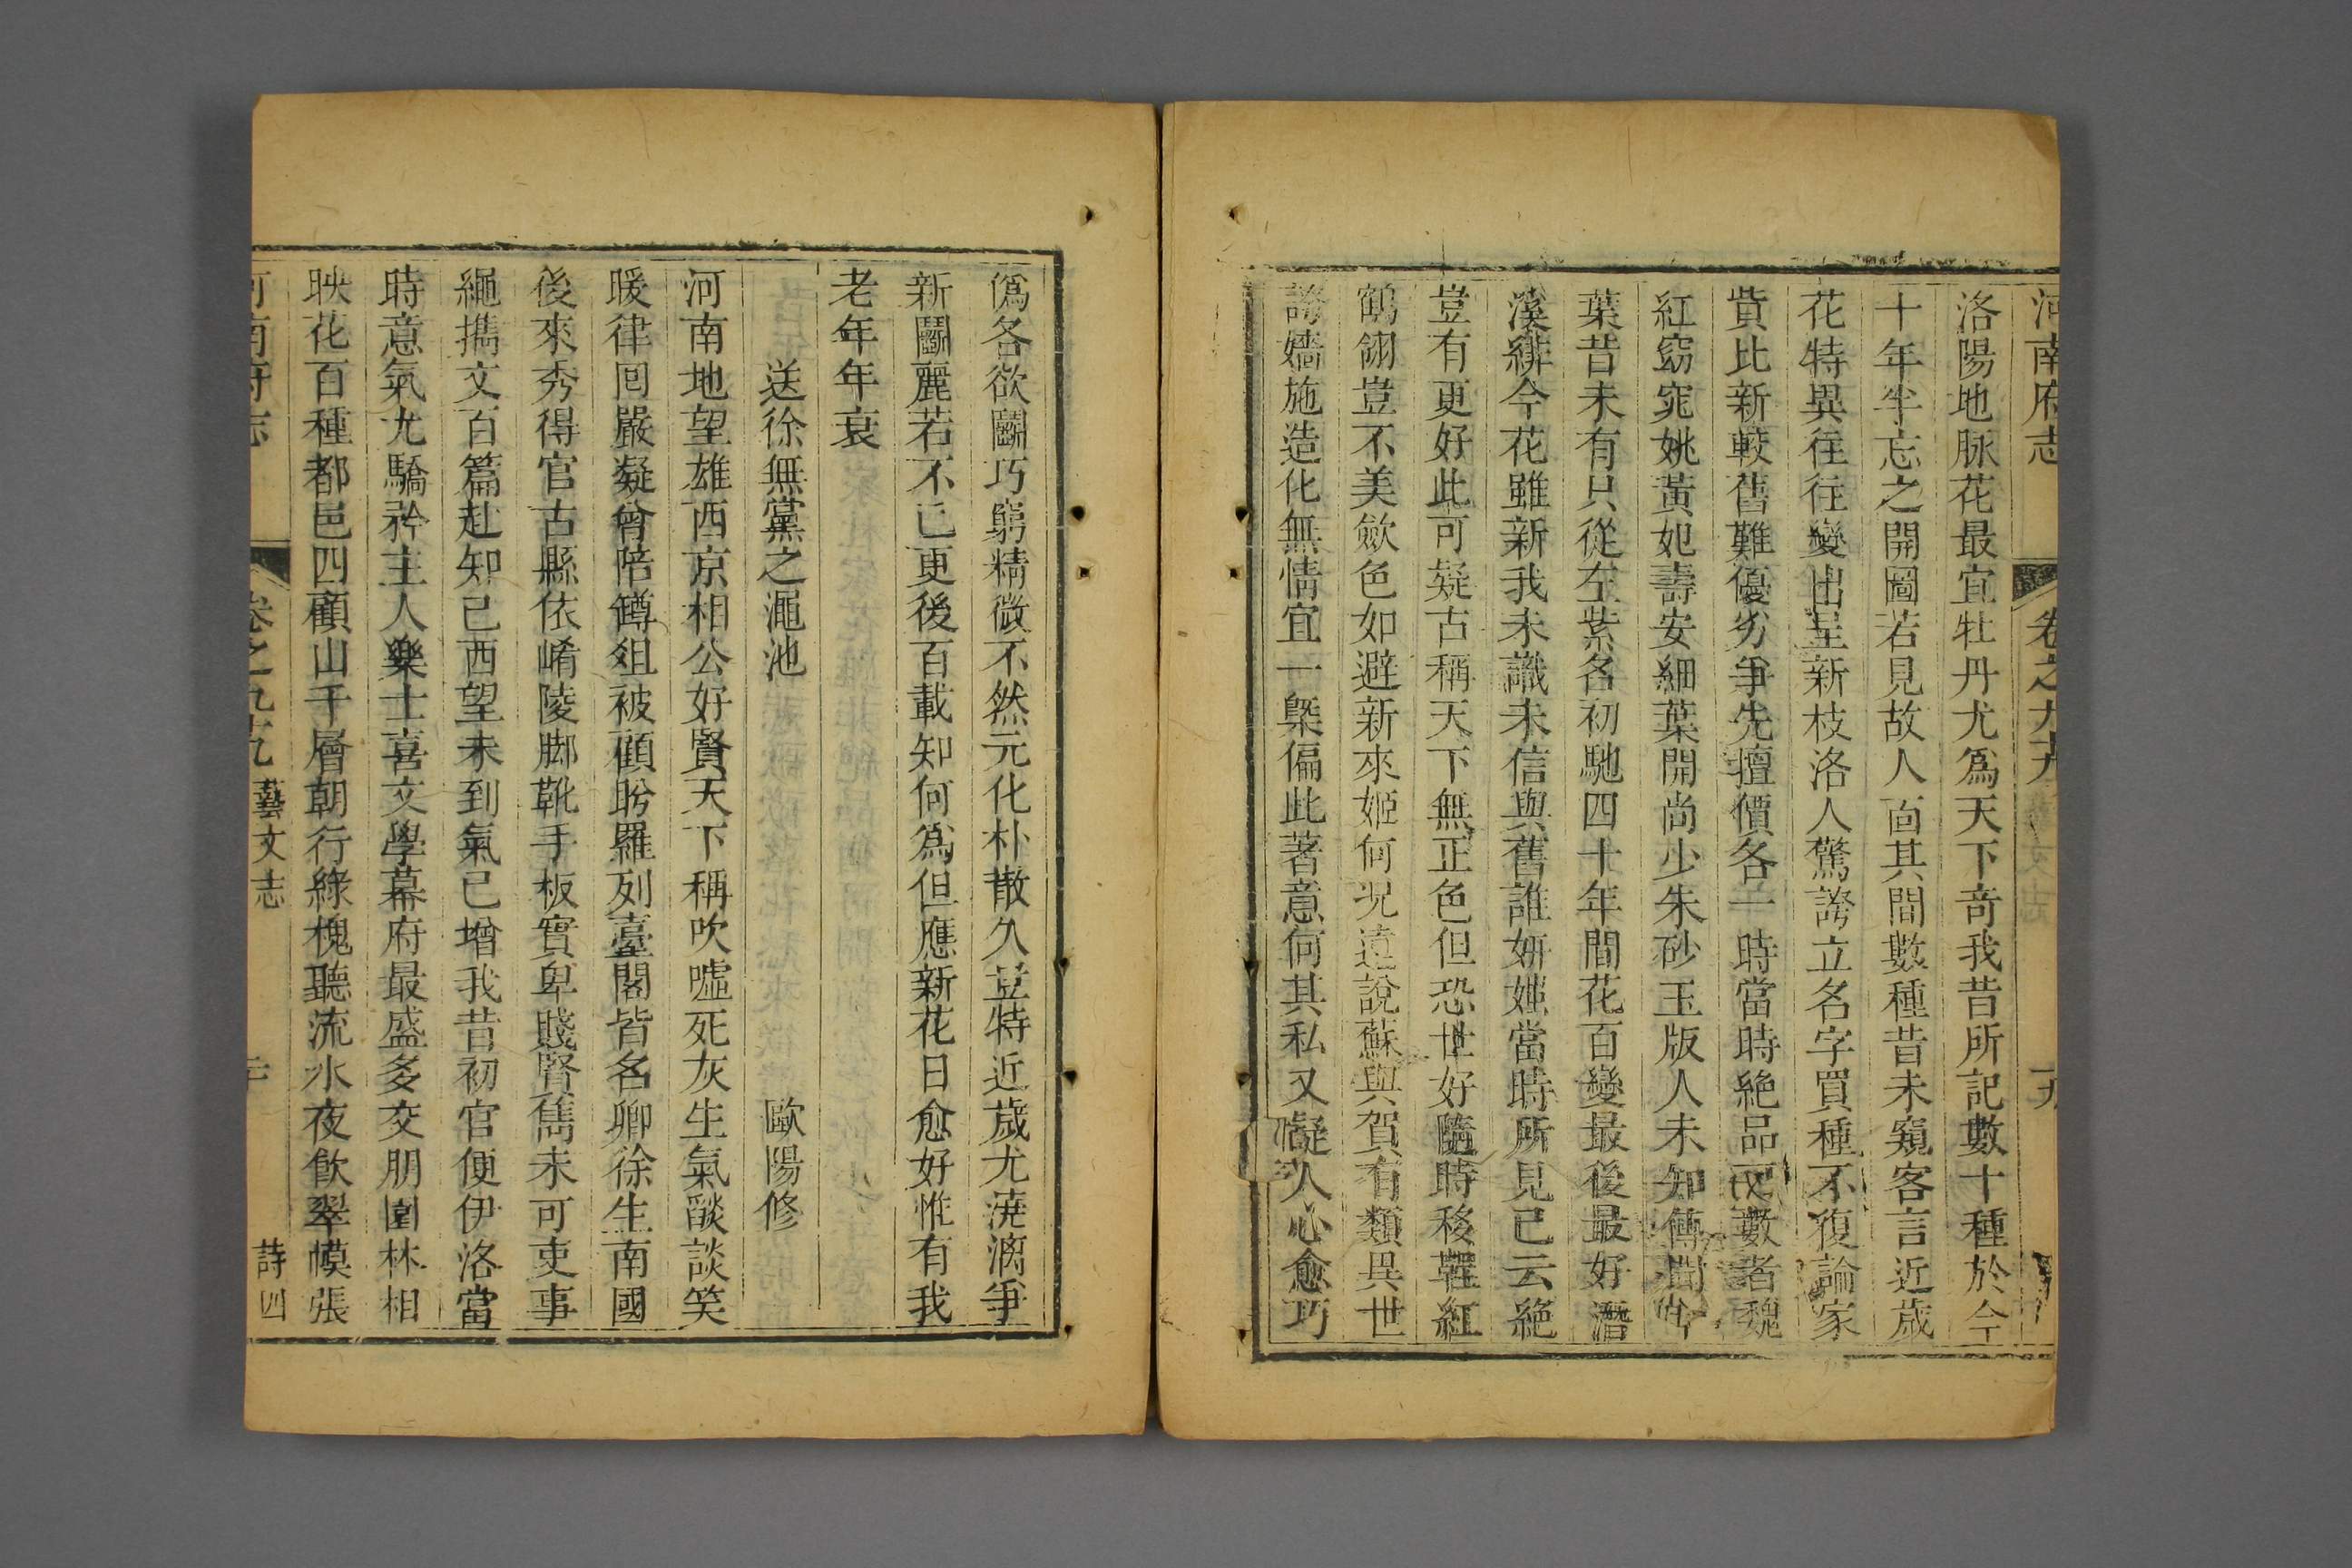 河南府志　卷之九十九　十九
洛陽地脉花最宜牡丹尤爲天下奇我昔所記數十種於今
十年半忘之開圖若見故人面其間數種昔未窺客言近歲
花特異往往變出呈新枝洛人驚誇立名字買種不復論家
貲比新較舊難優劣爭先擅價各一時當時絶品可數者魏
紅窈窕姚黃妃壽安細葉開尚少朱砂玉版人未知傳聞今
葉昔未有只從左紫名初馳四十年間花百變最後最好潛
溪緋今花雖新我未識未信與舊誰妍媸當時所見已云絶
豈有更好此可疑古稱天下無正色但恐世好隨時移鞓紅
鶴翎豈不美歛色如避新來姬何况遠說蘇與賀有類異世
誇嬌施造化無情宜一槩偏此著意何其私又礙人心愈巧
僞各欲鬭巧窮精微不然元化朴散久豈特近歲尤澆漓爭
新鬭麗若不已更後百載知何爲但應新花日愈好惟有我
老年年衰
送徐無黨之澠池　歐陽修
河南地望雄西京相公好賢天下稱吹噓死灰生氣燄談笑
暖律回嚴凝曾陪罇俎被顧盻羅列臺閣皆名卿徐生南國
後來秀得官古縣依崤陵脚靴手板實卑賤賢雋未可吏事
繩攜文百篇赴知己西望未到氣已增我昔初官便伊洛當
時意氣尤驕矜主人樂士喜文學幕府最盛多交朋園林相
映花百種都邑四顧山千層朝行綠槐聽流水夜飮翠幙張
河南府志　卷之九十九　藝文志　二十　詩四